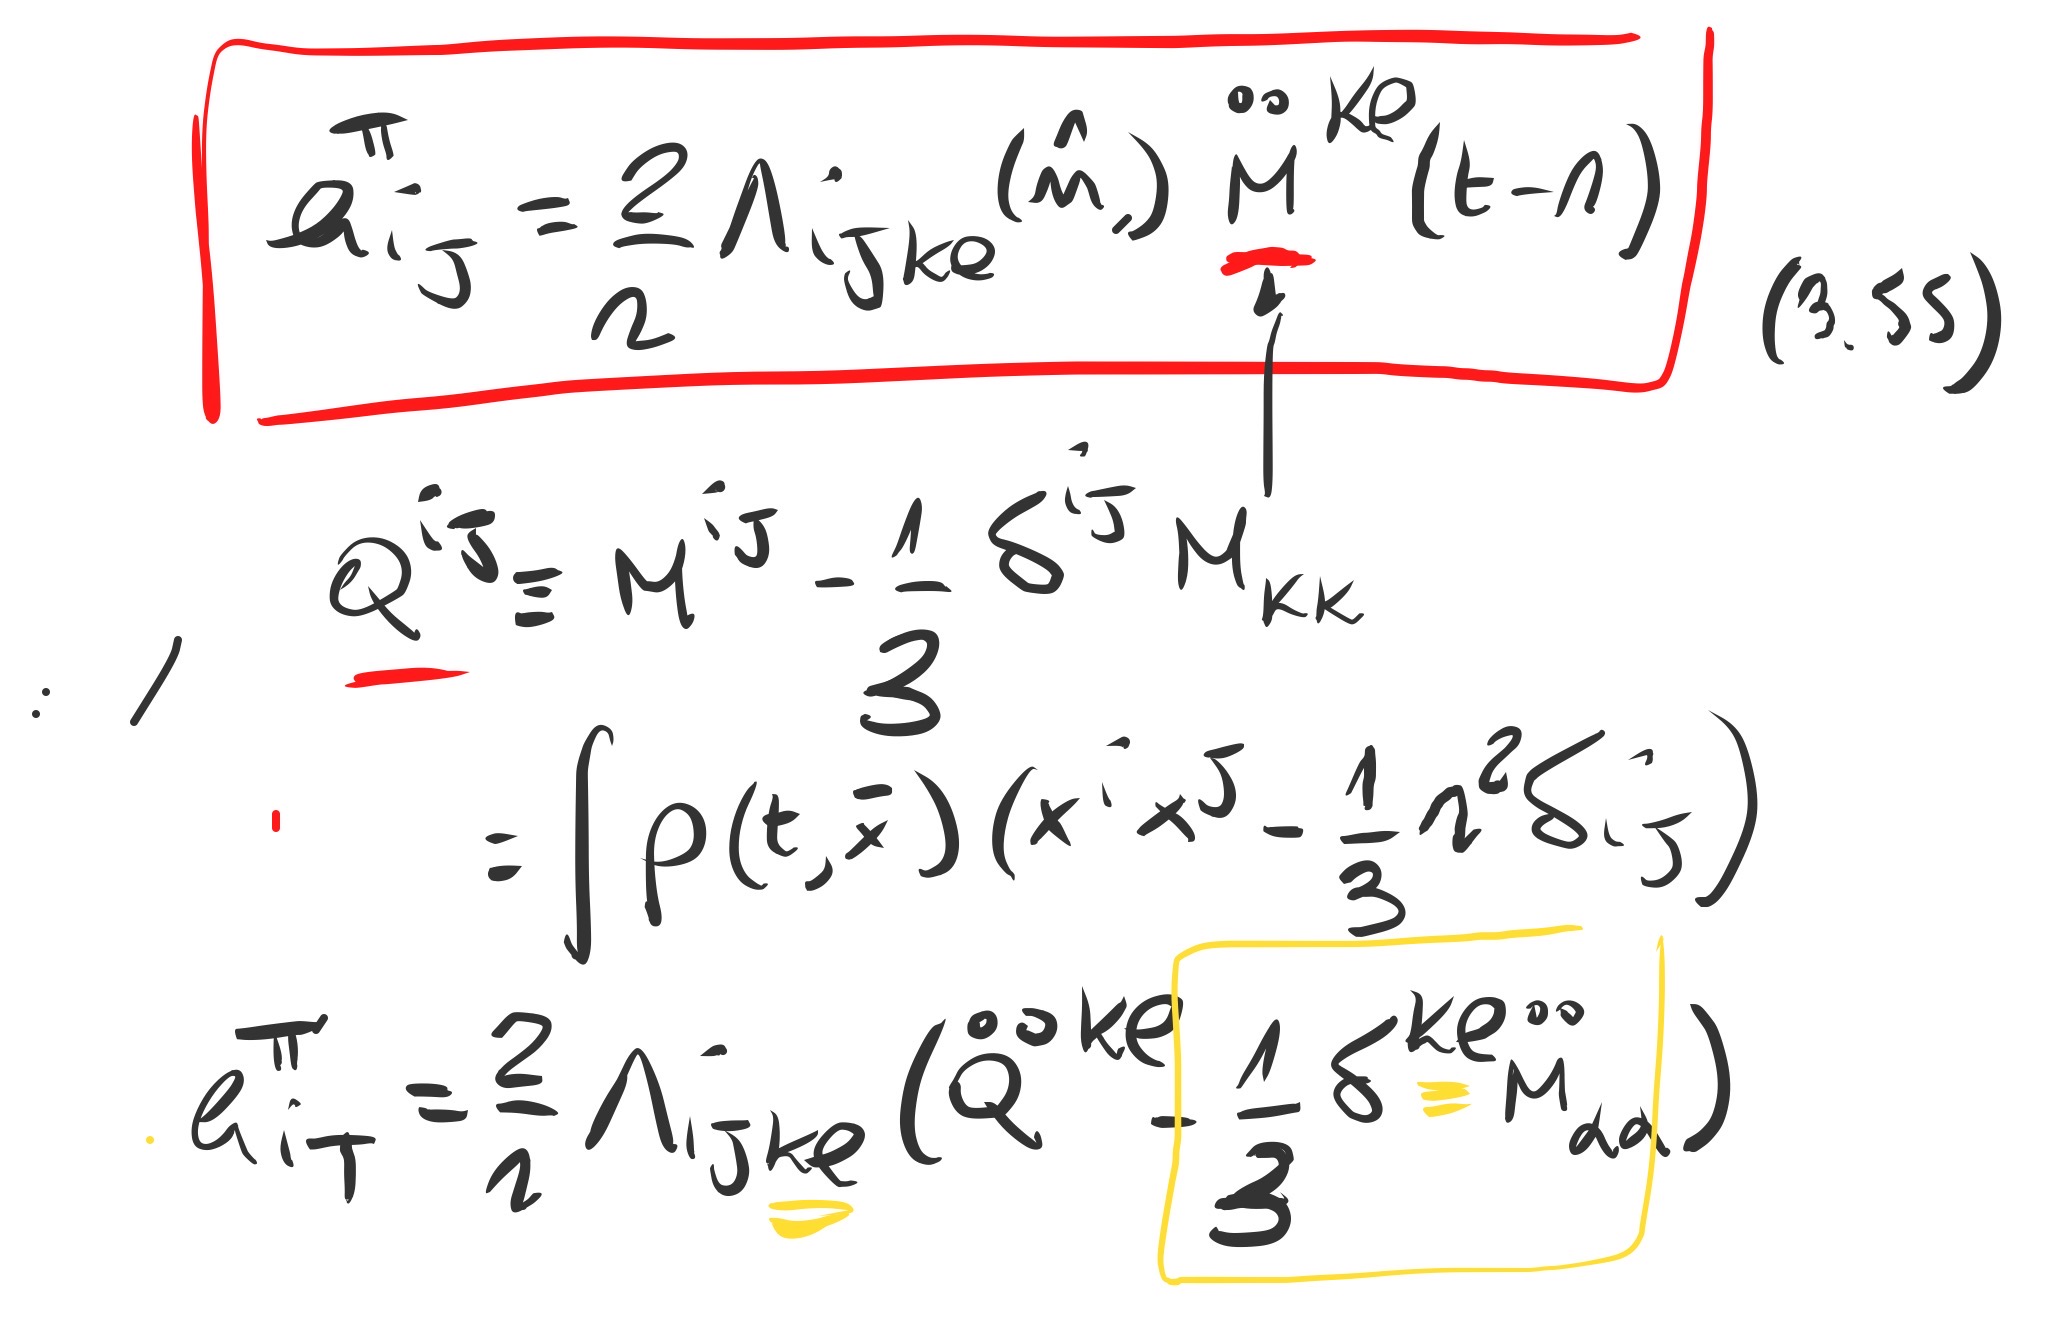 h^{TT}_{ij} = \frac{2}{r} Λ_{ijkl}(\hat{n}) \ddot{M}^{kl}(t-r) (3.55)
Q^{ij} ≡ M^{ij} - \frac{1}{3} δ^{ij} M_{kk}
= ∫ ρ(t, \bar{x}) (x^i x^j - \frac{1}{3} r^2 δ_{ij})
h^{TT}_{ij} = \frac{2}{r} Λ_{ijkl} (\ddot{Q}^{kl} - \frac{1}{3} δ^{kl} \ddot{M}_{αα})